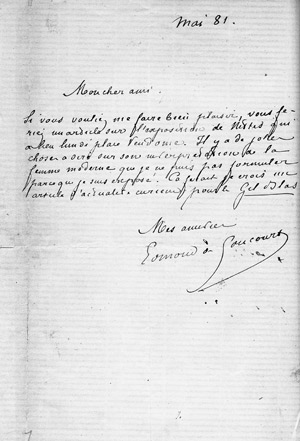 Mai 81.
Mon cher ami.
Si vous voulié me faire bien plaisir, vous fe-
rié un article sur l'exposition de Nittis qui
a lieu lundi place Vendôme. Il y a de jolies
choses à dire sur son interprétation de la
femme moderne que je ne puis pas formuler
parce que je suis exposé. Ça ferait je crois un
article d'actualité curieux pour le Gil Blas
Mes amitiés
Edmond de Goncourt